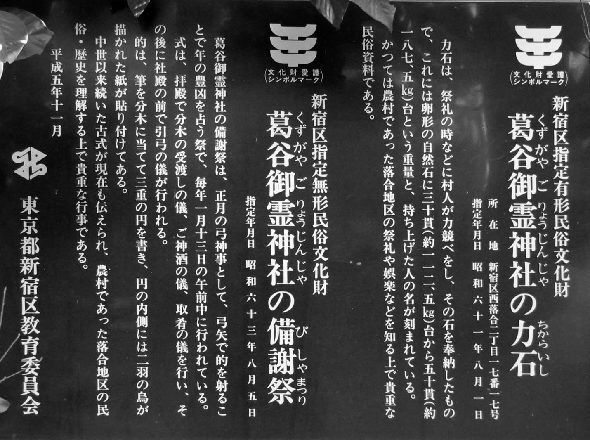 文化財愛護
シンボルマーク
新宿区指定有形民俗文化財
葛谷御霊神社の力石
くずがや ごりょうじんじゃ ちからいし
所在地 新宿区西落合二丁目一七番一七号
指定年月日 昭和六十一年八月一日
力石は、祭礼の時などに村人が力競べをし、その石を奉納したもの
で、これには卵形の自然石に三十貫(約一一二、五kg)台から五十貫(約
一八七、五kg)台という重量と、持ち上げた人の名が刻まれている。
かつては農村であった落合地区の祭礼や娯楽などを知る上で貴重な
民俗資料である。
文化財愛護
シンボルマーク
新宿区指定無形民俗文化財
葛谷御霊神社の備謝祭
くずがや ごりょうじんじゃ びしゃまつり
指定年月日 昭和六十三年八月五日
葛谷御霊神社の備謝祭は、正月の弓神事として、弓矢で的を射るこ
とで年の豊凶を占う祭で、毎年一月十三日の午前中に行われている。
式は、拝殿で分木の受渡しの儀、ご神酒の儀、取肴の儀を行い、そ
の後に社殿の前で引弓の儀が行われる。
的は、筆を分木に当てて三重の円を書き、円の内側には二羽の烏が
描かれた紙が貼り付けてある。
中世以来続いた古式が現在も伝えられ、農村であった落合地区の民
俗・歴史を理解する上で貴重な行事である。
平成五年十一月
東京都新宿区教育委員会